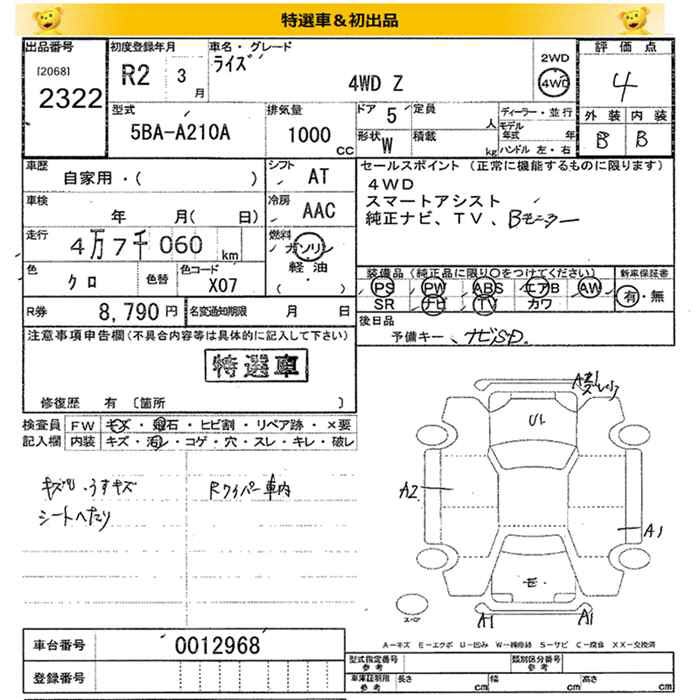 特選車&初出品
出品番号 初度登録年月 車名・グレード 2WD 評価点
[2068] R2 3月 ライズ 4WD 4
2322 4WD Z 外装 内装
型式 排気量 ドア 5 定員 人 ディーラー・並行 B B
5BA-A210A 1000 CC 形状 W 積載 kg モデル年式 年
ハンドル 左・右
車歴 シフト AT セールスポイント (正常に機能するものに限ります)
自家用・( ) 4WD
車検 冷房 AAC スマートアシスト
年 月( 日) 純正ナビ、TV、Bモニター
走行 燃料
4万7千060km ガソリン
軽・油
( )
色 クロ 色替 色コード X07 装備品(純正品に限り○をつけてください) 新車保証書
PS PW ABS エアB AW 有・無
SR ナビ TV カワ
R券 8,790円 名変通知期限 月 日 後日品
予備キー、ナビSD.
注意事項申告欄(不具合内容等は具体的に記入して下さい)
特選車
修復歴 有〔箇所 〕
検査員 FW キズ・飛石・ヒビ割・リペア跡・×要
記入欄 内装 キズ・汚レ・コゲ・穴・スレ・キレ・破レ
キズ、うすキズ Rワイパー車内
シートへたり
A2
A1
A1 A1
スペア
A=キズ E=エクボ U=凹み W=補修跡 S=サビ C=腐食 XX=交換済
車台番号 0012968 型式指定番号 参考 類別区分番号 参考
登録番号 車庫証明用 参考 長さ cm 幅 cm 高さ cm